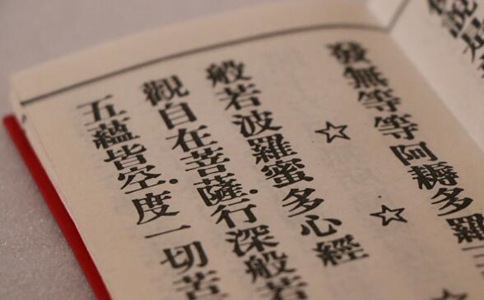 說是
發無等等阿耨多羅
☆ ☆ ☆
般若波羅蜜多心經
觀自在菩薩.行深般若
五蘊皆空.度一切苦